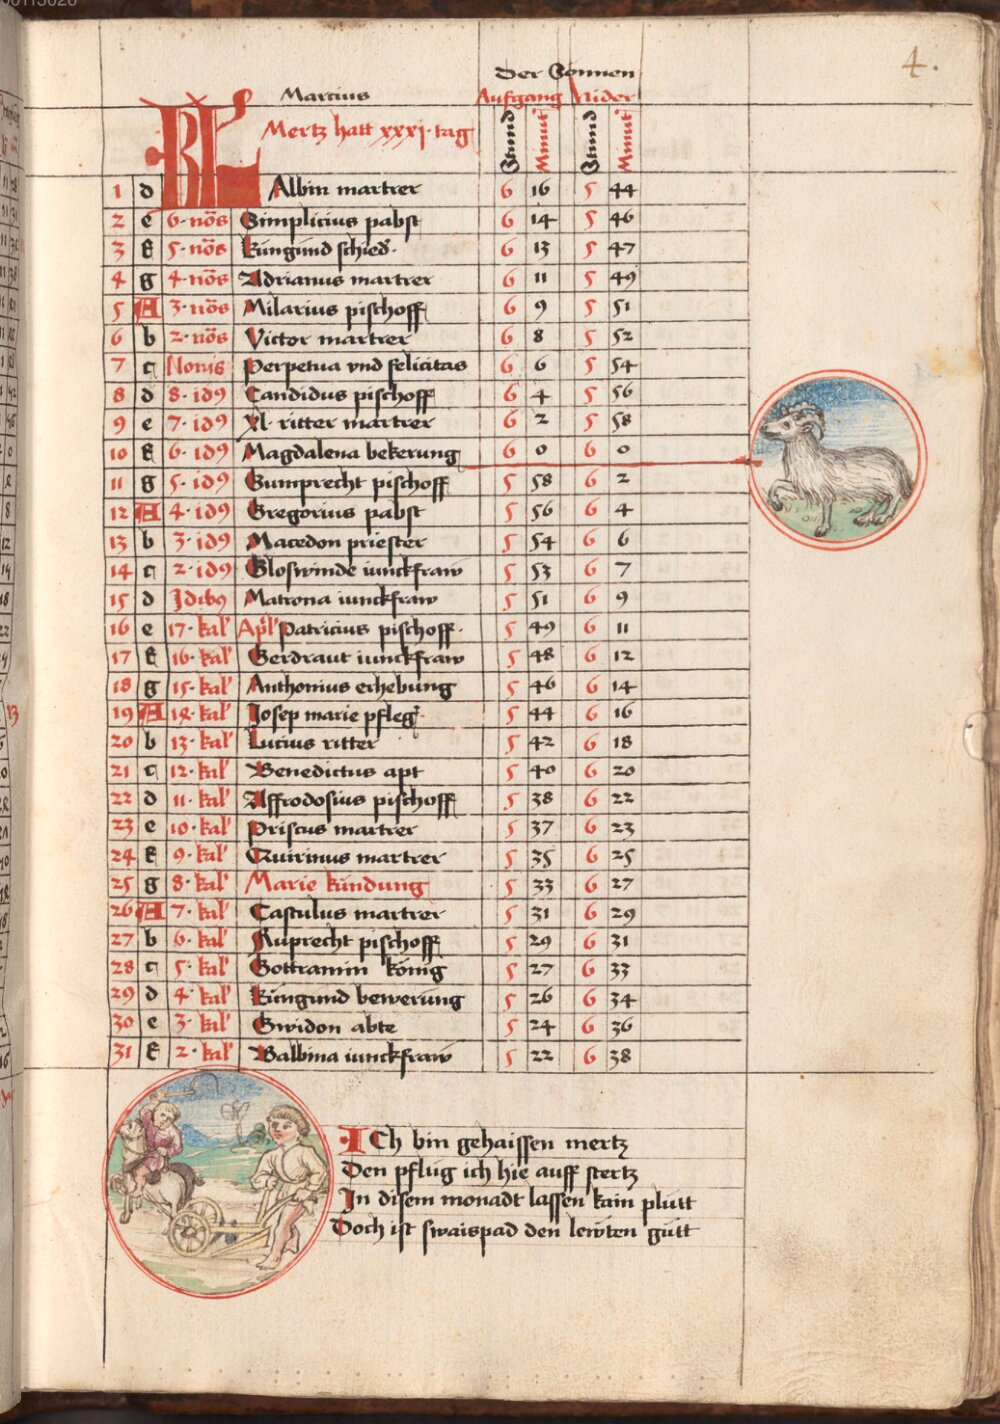 4.
Der Sonnen
Martius Aufgang Nider
KL Mertz hatt xxxj· tag Stund Minut Stund Minut
1 d Albin martrer 6 16 5 44
2 e 6· nōs Simplicius pabst 6 14 5 46
3 f 5· nōs Kungund schied· 6 13 5 47
4 g 4· nōs Adrianus martrer 6 11 5 49
5 A 3· nōs Hilarius pischoff 6 9 5 51
6 b 2· nōs Victor martrer 6 8 5 52
7 c Nonis Perpetua vnd felicitas 6 6 5 54
8 d 8· id9 Candidus pischoff 6 4 5 56
9 e 7· id9 Xl· ritter martrer 6 2 5 58
10 f 6· id9 Magdalena bekerung 6 0 6 0
11 g 5· id9 Gumprecht pischoff 5 58 6 2
12 A 4· id9 Gregorius pabst 5 56 6 4
13 b 3· id9 Macedon priester 5 54 6 6
14 c 2· id9 Gloswinde iunckfraw 5 53 6 7
15 d Idib9 Matrona iunckfraw 5 51 6 9
16 e 17· kal' Apl' Patricius pischoff· 5 49 6 11
17 f 16· kal' Gerdraut iunckfraw 5 48 6 12
18 g 15· kal' Anthonius erhebung 5 46 6 14
19 A 14· kal' Josep marie pfleg' 5 44 6 16
20 b 13· kal' Lucius ritter 5 42 6 18
21 c 12· kal' Benedictus apt 5 40 6 20
22 d 11· kal' Affrodosius pischoff 5 38 6 22
23 e 10· kal' Priscus martrer 5 37 6 23
24 f 9· kal' Quirinus martrer 5 35 6 25
25 g 8· kal' Marie kündung 5 33 6 27
26 A 7· kal' Castulus martrer 5 31 6 29
27 b 6· kal' Ruprecht pischoff 5 29 6 31
28 c 5· kal' Gottramin könig 5 27 6 33
29 d 4· kal' Kungund bewerung 5 26 6 34
30 e 3· kal' Gwidon abte 5 24 6 36
31 f 2· kal' Balbina iunckfraw 5 22 6 38
ICh bin gehaissen mertz
Den pflug ich hie auff stertz
In disem monadt lassen kain plutt
Doch ist swaispad den lewten gutt